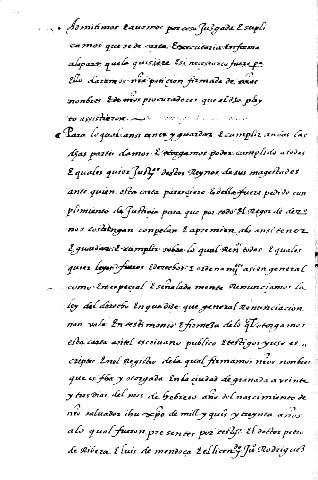 Admitimos E avemos por cosa Juzgada E supli
camos que se de carta Executoria En forma
a la parte que la quisiere E si necesario fuere pa
Ello daremos nra peticion firmada de nros
nonbres E de nros procuradores que al dho pley
to assistieron
Para lo qual ansi tener y guardar E cumplir anbas las
dhas partes damos E otorgamos poder cumplido a todos
E quales quier Justas destos Reynos de sus magestades
ante quien esta carta pareciere E della fuere pedido cun
plimiento de Justicia para que por todo El Rigor de derº
nos costringan conpelan E apremien a lo ansi tener
E guardar E cumplir sobre lo qual Renos todas E quales
quier leyes fueros E derechos E ordenamios asi en general
como En especial E señalada mente Renunciamos la
ley del derecho En que dize que general Renunciacion
non vala En testimonio E firmeza de lo ql otorgamos
esta carta antel escrivano publico E testigos yuso es
criptos En el Registro de la qual firmamos nros nonbres
que es fha y otorgada En la ciudad de granada a veinte
y tres dias del mes de hebrero año del nascimiento de
nro salvador ihu xpo de mill y quios y treynta años
a lo qual fueron presentes por testigos El doctor pero
de Ribera E luis de mendoça E el licendo Ju Rodriguez